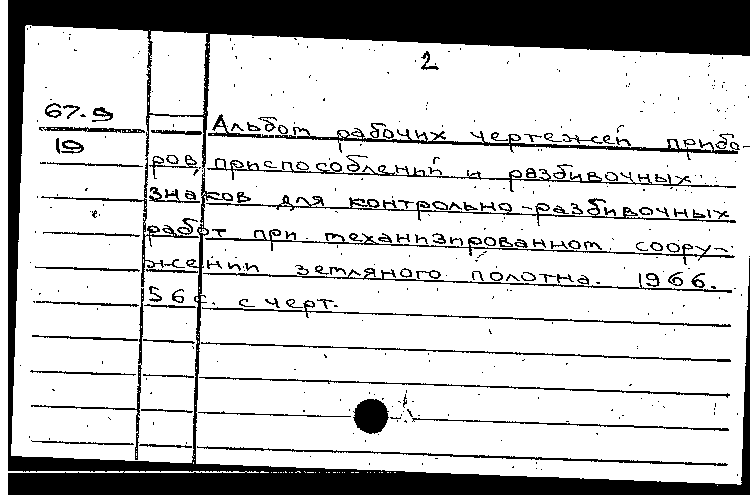 2
67-9
19
Альбом рабочих чертежей прибо-
ров, приспособлений и разбивочных
знаков для контрольно-разбивочных
работ при механизированном соору-
жении земляного полотна. 1966.
56с. с черт.